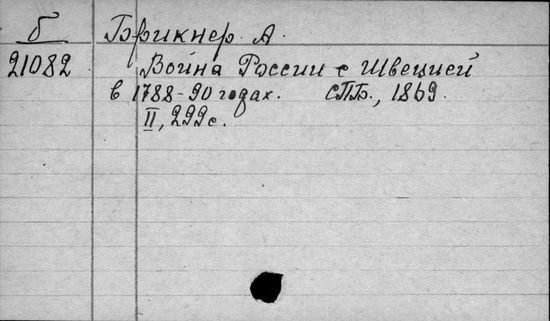 Б Брикнер. А.
21082 Война России с Швецией
в 1788-90 годах. СПБ., 1869.
II, 299 с.